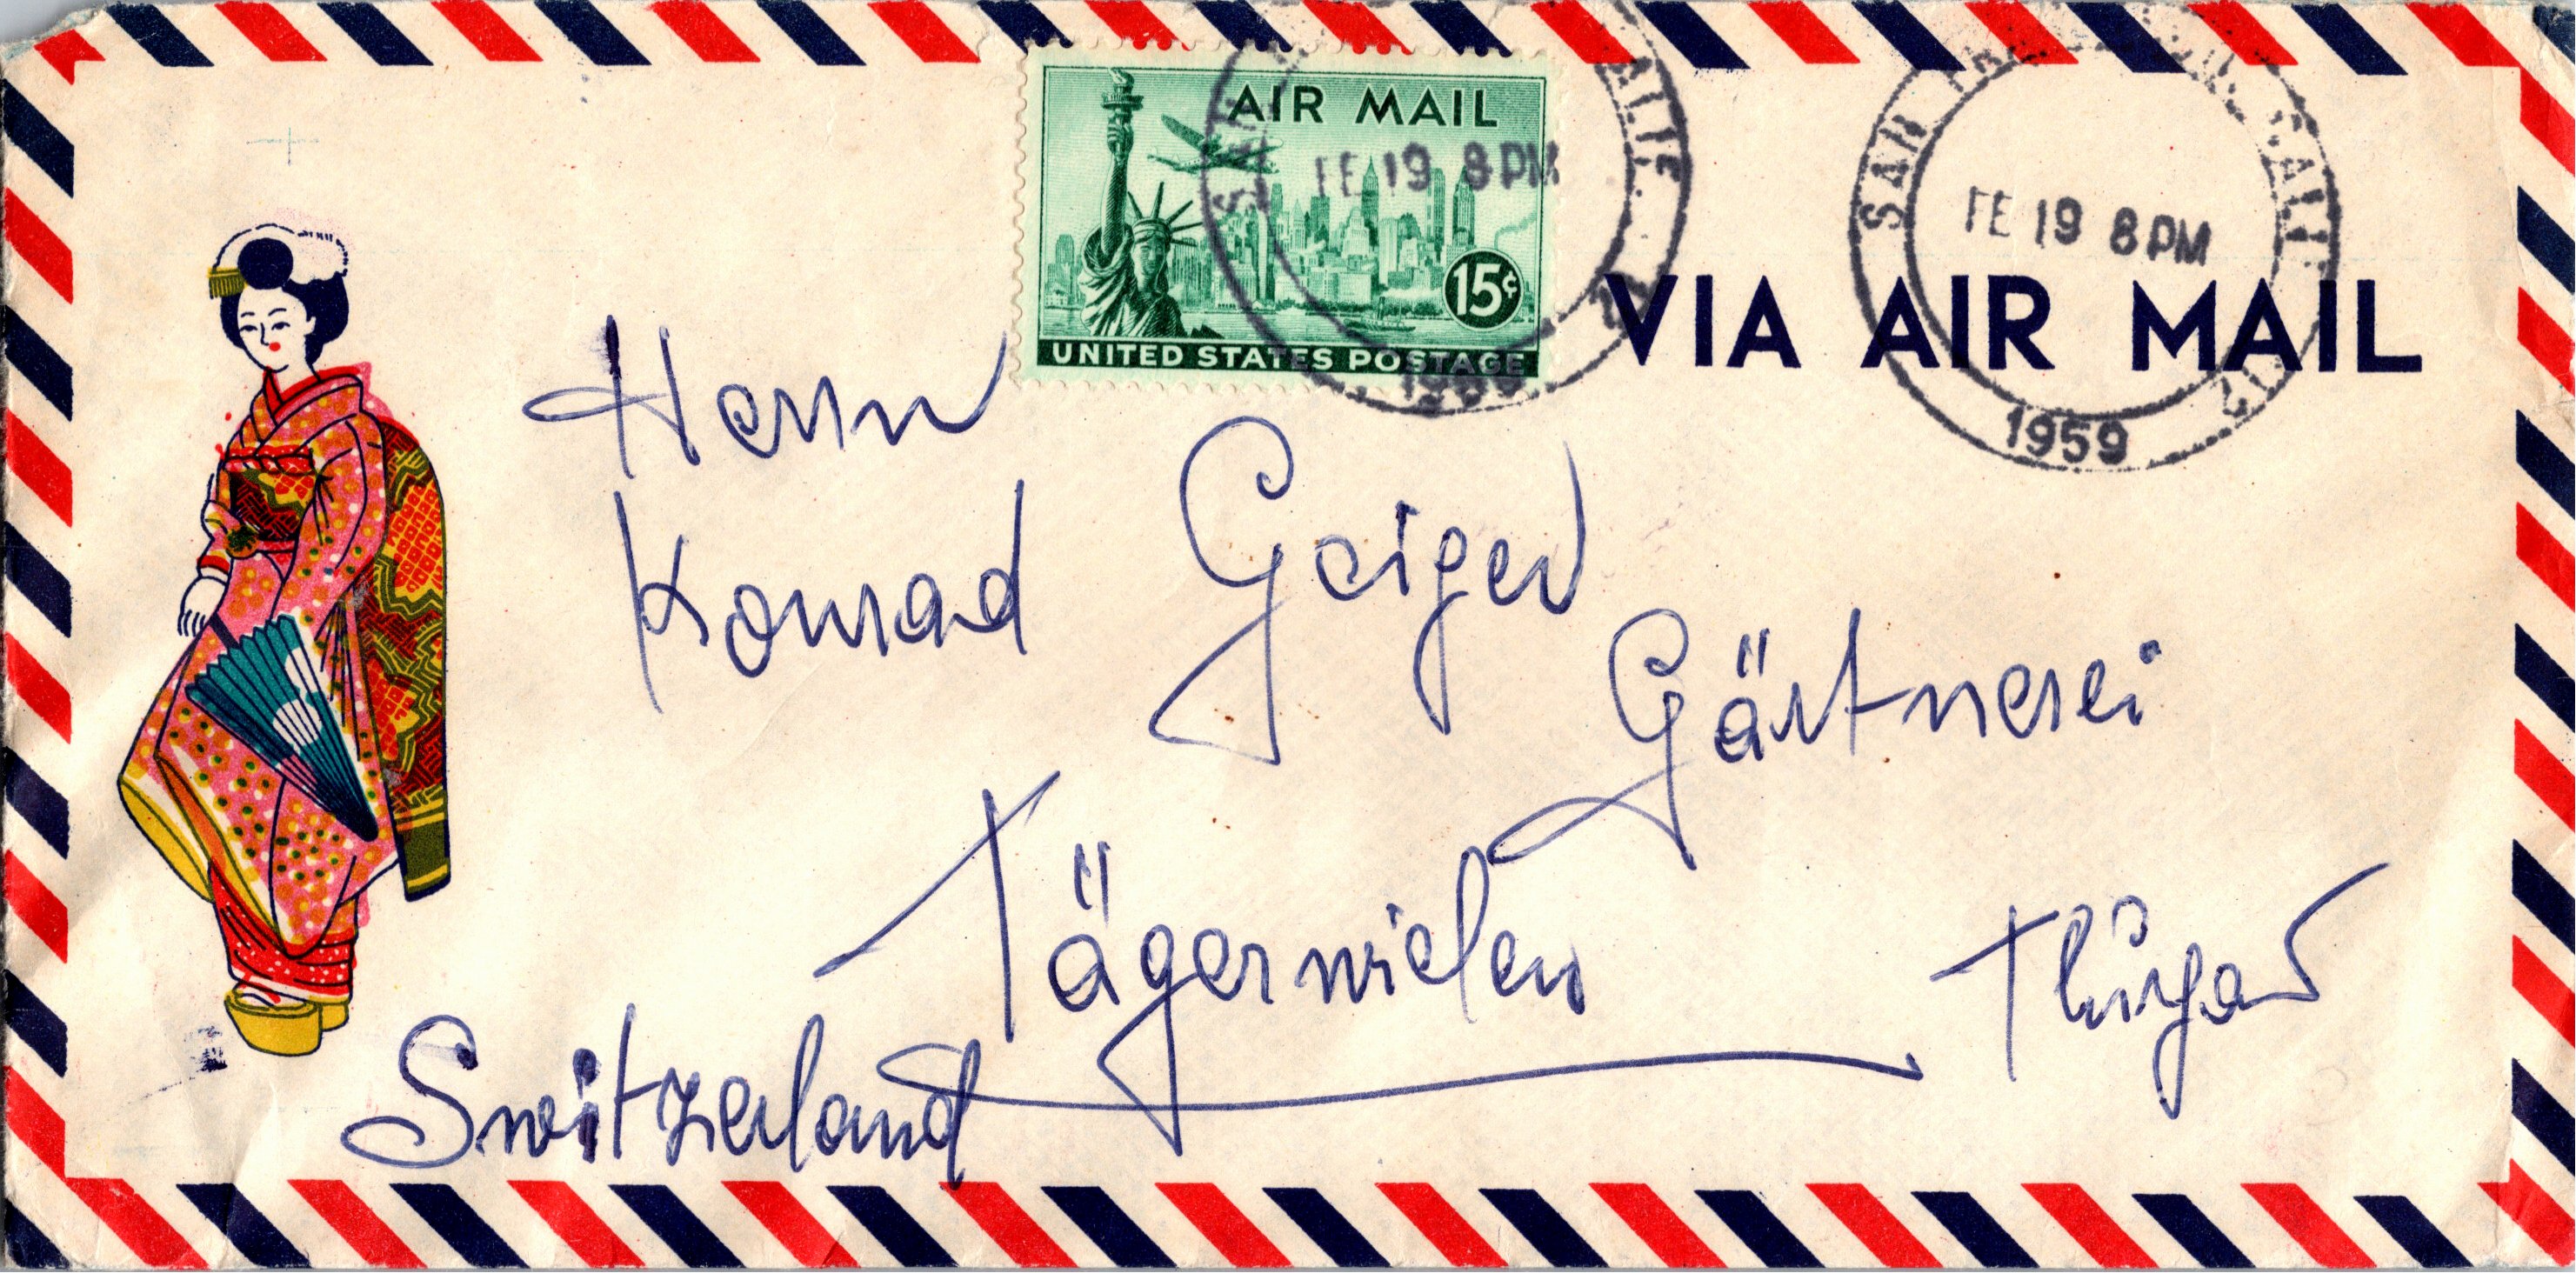 AIR MAIL
15¢
UNITED STATES POSTAGE
SAN CALIF.
FE 19 8 PM
1959
SAN FRANCISCO, CALIF.
FE 19 8 PM
1959
VIA AIR MAIL
Herrn
Konrad Geiger
Gärtnerei
Tägerwielen
Thürgau
Switzerland